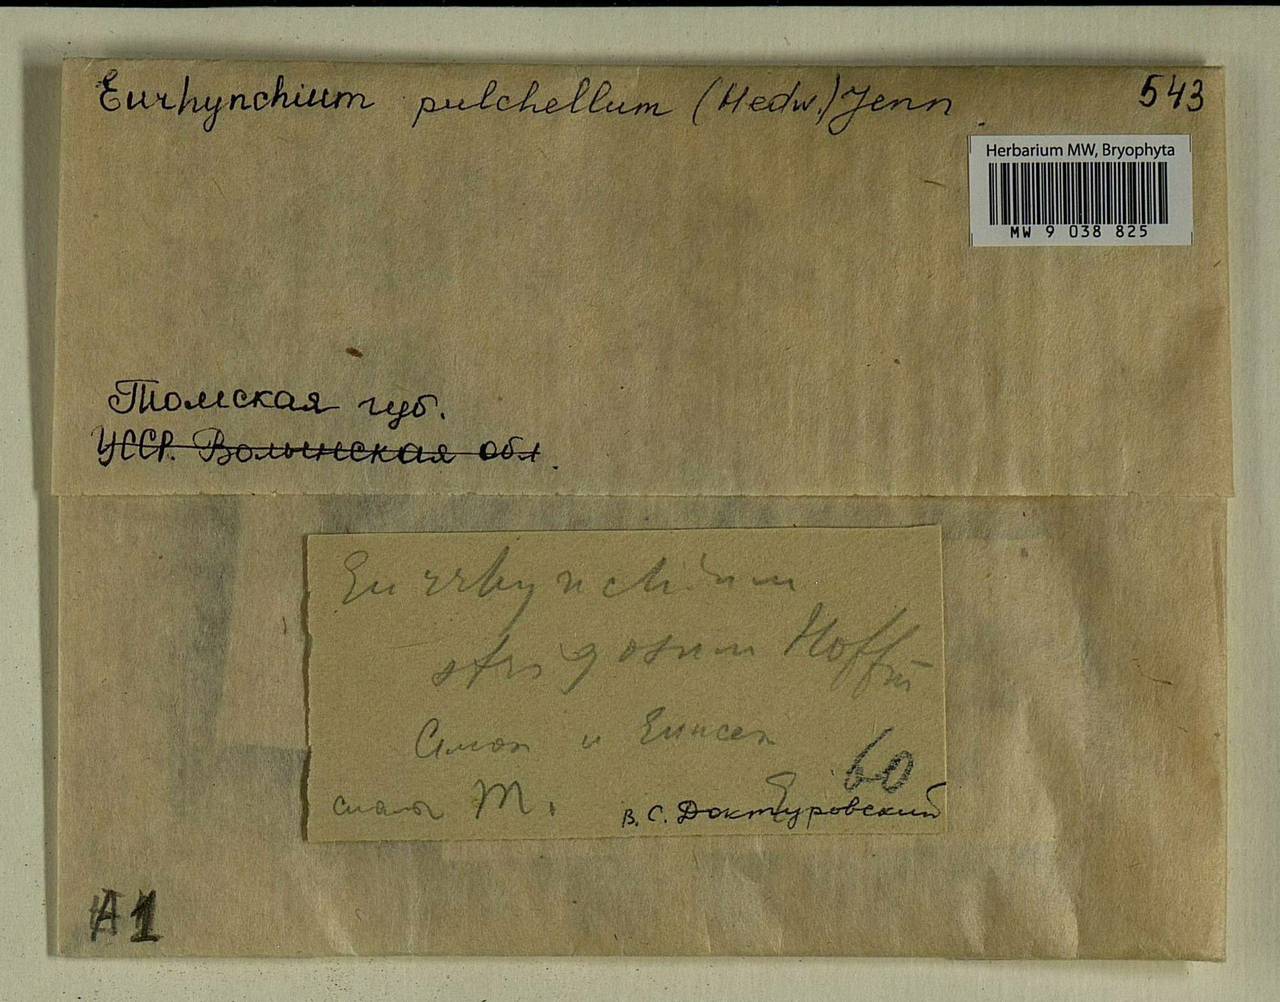 Eurhynchium pulchellum (Hedw.) Jenn.
543
Herbarium MW, Bryophyta
MW 9 038 825
Томская губ.
УССР. Волынская обл.
Eurrhynchium
strigosum Hoffm
и Енисея
60
М.
В. С. Доктуровский
А1